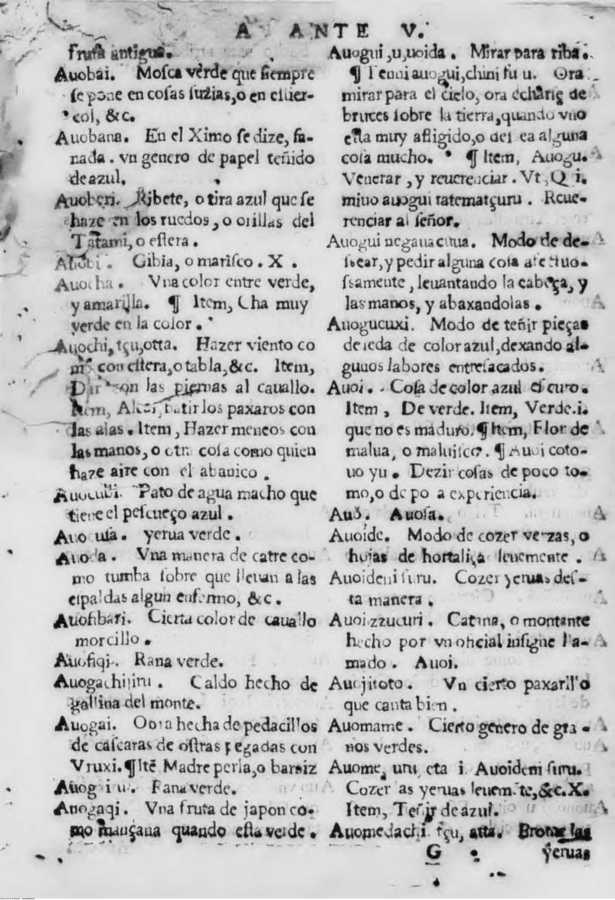 A ANTE V.
fruta antigua.
Auobai. Mosca verde que siempre
se pone en cosas suzias, o en estier-
col, &c.
Auobana. En el Ximo se dize, fa-
nada. vn genero de papel teñido
de azul.
Auoberi. Ribete, o tira azul que se
haze en los ruedos, o orillas del
Tatami, o estera.
Gibia, o marisco. X.
Auocha. Vna color entre verde,
y amarilla. ¶ Item, Cha muy
verde en la color.
Auochi, tçu, otta. Hazer viento co
mo con estera, o tabla, &c. Item,
Dar con las piernas al cauallo.
Item, batir los paxaros con
las alas. Item, Hazer meneos con
las manos, o otra cosa como quien
haze aire con el abanico.
Auocubi. Pato de agua macho que
tiene el pescueço azul.
yerua verde.
Auoda. Vna manera de catre co-
mo tumba sobre que lleuan a las
espaldas algun enfermo, &c.
Auofibari. Cierta color de cauallo
morcillo.
Auofiqi. Rana verde.
Auogachijiru. Caldo hecho de
gallina del monte.
Auogai. Obra hecha de pedacillos
de cascaras de ostras pegadas con
Vruxi. ¶ Itē Madre perla, o barniz
Rana verde.
Auogaqi. Vna fruta de japon co-
mo mançana quando esta verde.
Auogui, u, uoida. Mirar para riba.
¶ Tenni auogui, chini fu u. Ora
mirar para el cielo, ora echarse de
bruces sobre la tierra, quando vno
esta muy afligido, o dessea alguna
cosa mucho. ¶ Item, Auogu.
Venerar, y reuerenciar. Vt, Qi.
miuo auogui tatematçuru. Reue-
renciar al señor.
Auogui negauacuua. Modo de de-
ssear, y pedir alguna cosa afectuo-
ssamente, leuantando la cabeça, y
las manos, y abaxandolas.
Auogucuxi. Modo de teñir pieças
de seda de color azul, dexando al-
gunos labores entresacados.
Auoi. Cosa de color azul escuro.
Item, De verde. Item, Verde. i.
que no es maduro. ¶ Item, Flor de
malua, o maluisco. ¶ Auoi coto-
uo yu. Dezir cosas de poco to-
mo, o de poca experiencia.
Auosa.
Auoide. Modo de cozer verzas, o
hojas de hortaliça leuemente.
Auoideni suru. Cozer yeruas des-
ta manera.
Auoizzucuri. Catana, o montante
hecho por vn oficial insigne lla-
mado. Auoi.
Auojitoto. Vn cierto paxarillo
que canta bien.
Auomame. Cierto genero de gra-
nos verdes.
Auome, uru, eta. i. Auoideni suru.
Cozer as yeruas leuemēte, &c. X.
Item, Teñir de azul.
Auomedachi. tçu, atta. Brotar las
G yeruas